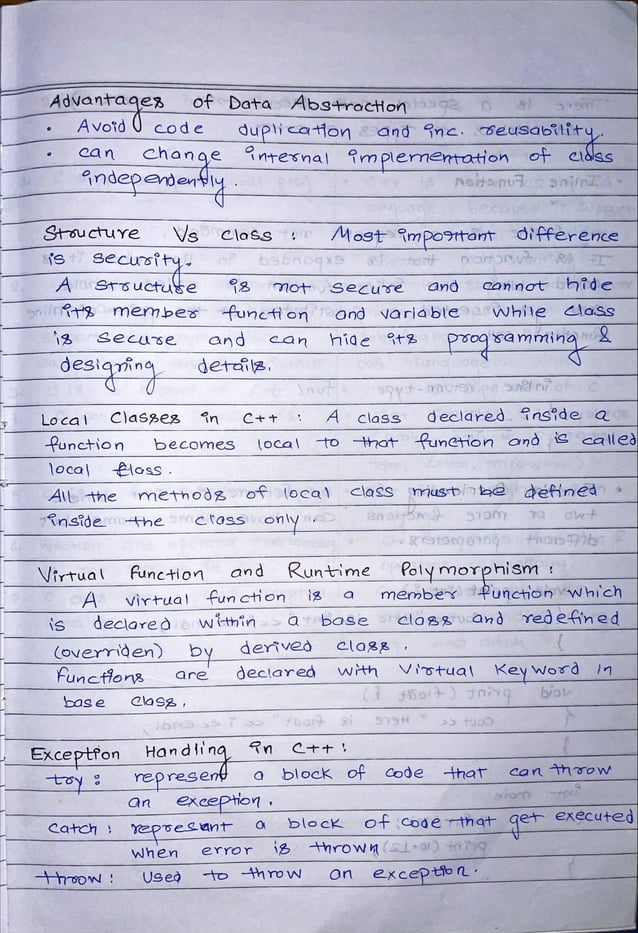 Advantages of Data Abstraction
• Avoid code duplication and inc. reusability.
• can change internal implementation of class
independently.
Structure Vs class : Most important difference
is security.
A structure is not secure and cannot hide
its member function and variable while class
is secure and can hide its programming &
designing details.
Local Classes in C++ : A class declared inside a
function becomes local to that function and is called
local class.
All the methods of local class must be defined
inside the class only.
Virtual Function and Runtime Polymorphism :
A virtual function is a member function which
is declared within a base class and redefined
(overriden) by derived class.
Functions are declared with Virtual Keyword in
base class.
Exception Handling in C++ :
try : represent a block of code that can throw
an exception.
Catch : represent a block of code that get executed
when error is thrown
throw : Used to throw an exception.